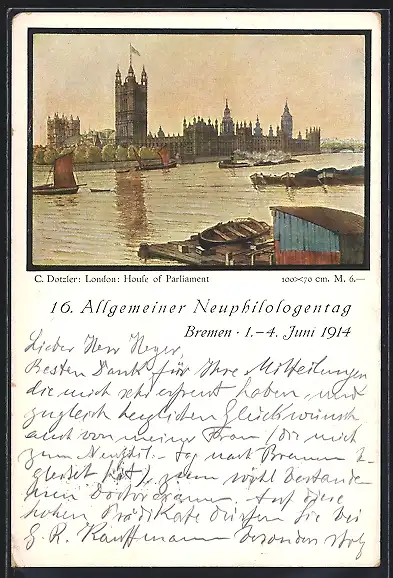 C. Dotzler: London: House of Parliament 100×70 cm. M. 6.—
16. Allgemeiner Neuphilologentag
Bremen · 1.–4. Juni 1914
Lieber Herr Heyer,
Besten Dank für Ihre Mitteilungen
die mich sehr erfreut haben, und
zugleich herzlichen Glückwunsch
auch von meiner Frau (die mich
zum Neuphil.-Tag nach Bremen
begleitet hat), zum wohl bestande-
nen Doctorexamen. Auf diese
hohen Prädikate dürfen Sie bei
G. R. Kauffmann besonders stolz